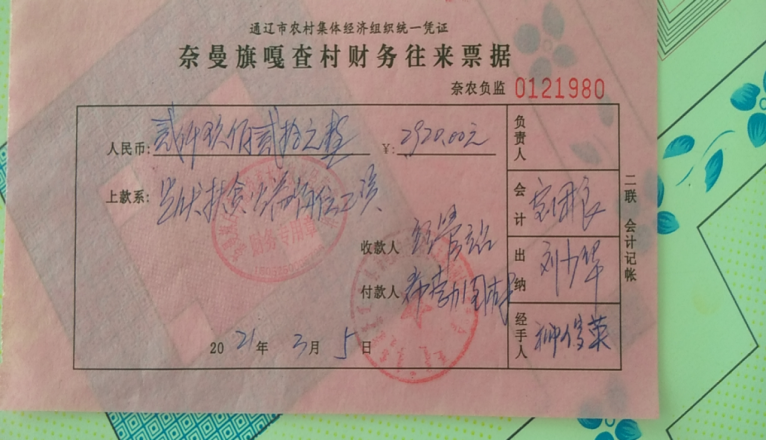 通辽市农村集体经济组织统一凭证
奈曼旗嘎查村财务往来票据
奈农负监 0121980
人民币: 贰仟玖佰贰拾元整 ¥: 2920.00元
上款系: 光伏扶贫公益岗位工资
收款人 经管站
付款人
2021年3月5日
负责人
会计
出纳 刘少华
经手人
二联 会计记帐
财务专用章